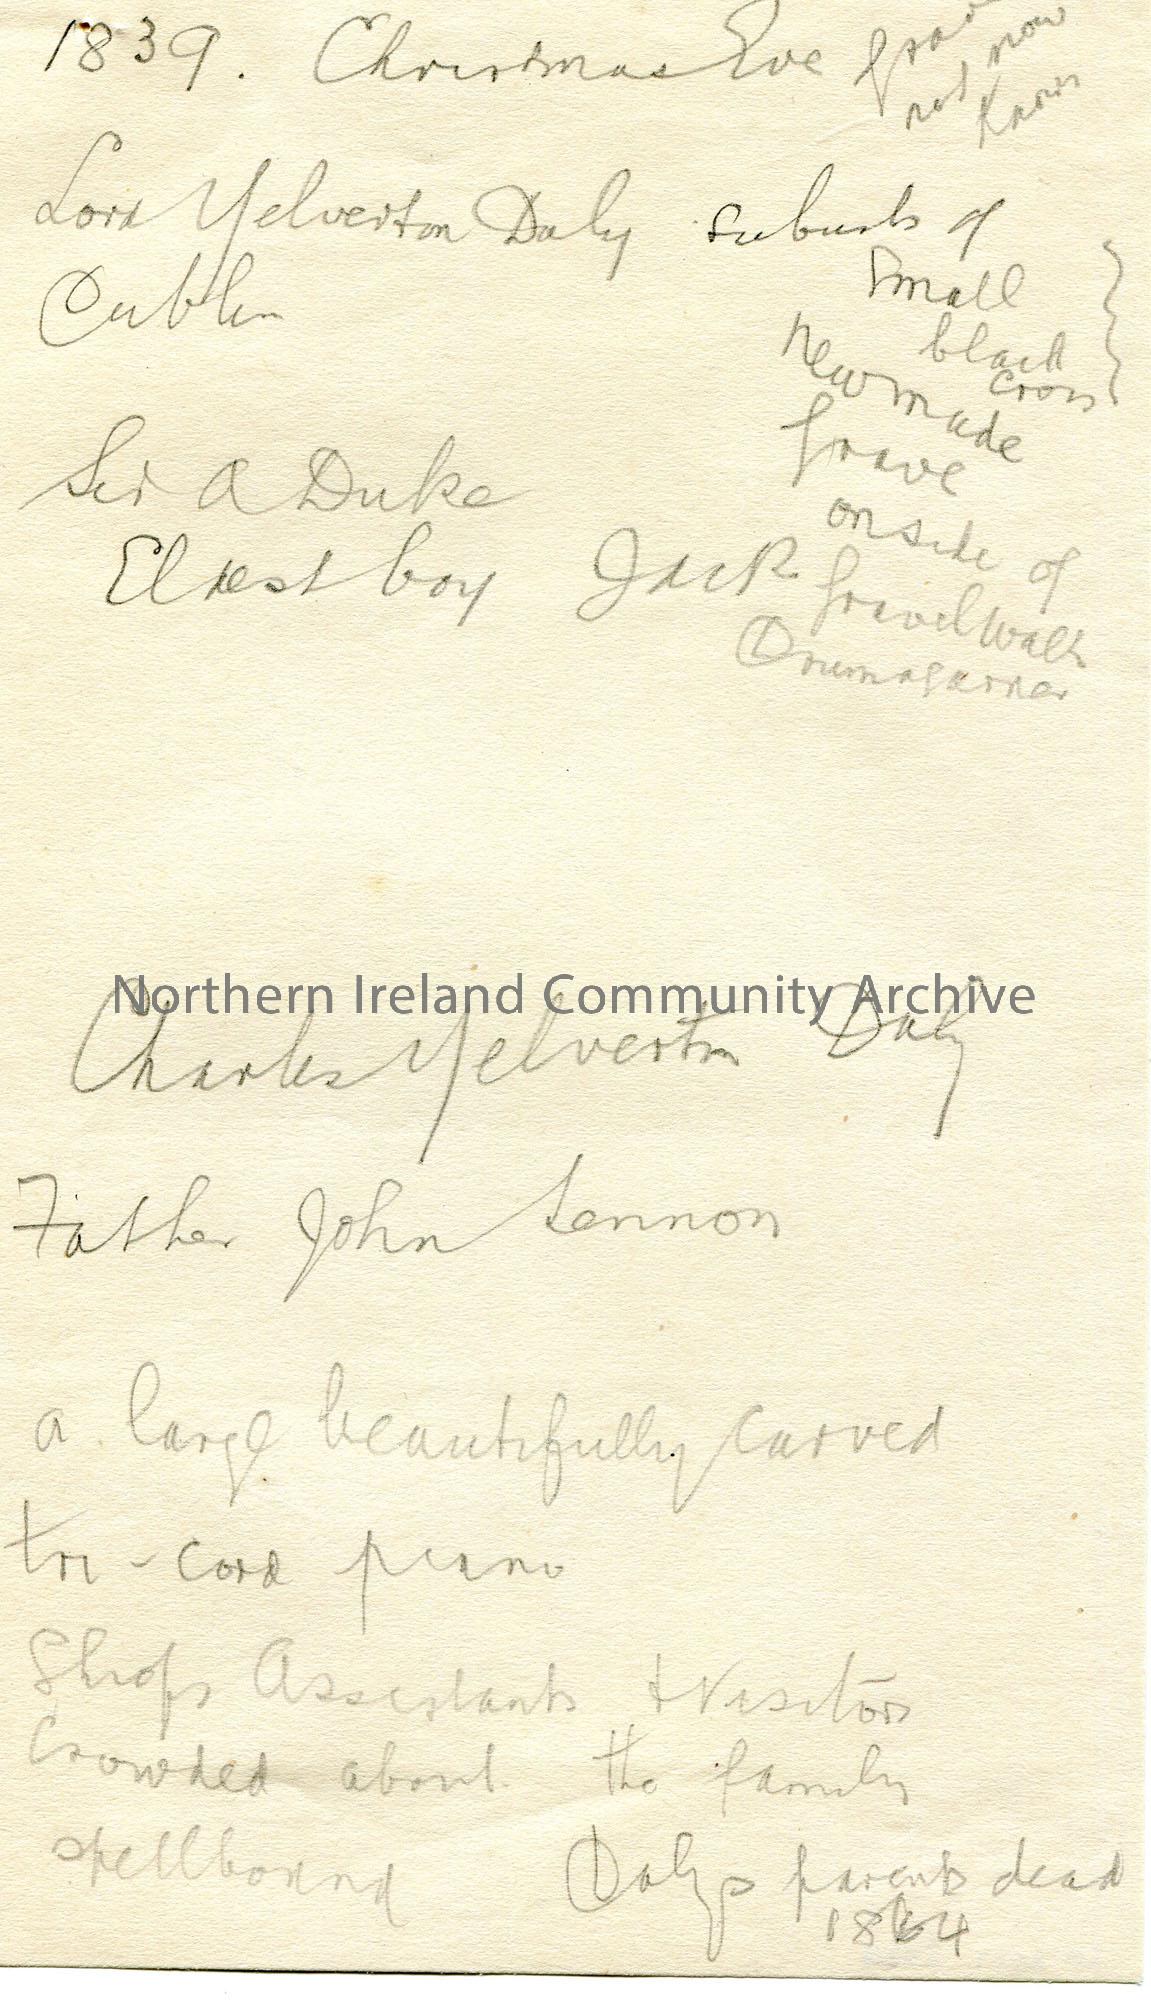 1839. Christmas Eve
not now
Known
Lord Yelverton Daly suburbs of
Dublin
Small
black
cross
New made
Grave
on side of
Gravel Walk
Drumagarner
Sir A Duke
Eldest boy Jack
Northern Ireland Community Archive
Charles Yelverton Daly
Father John Lennon
a large beautifully carved
tri-cord piano
Shops Assistants + Visitors
Crowded about the family
spellbound
Dalys parents dead
1864